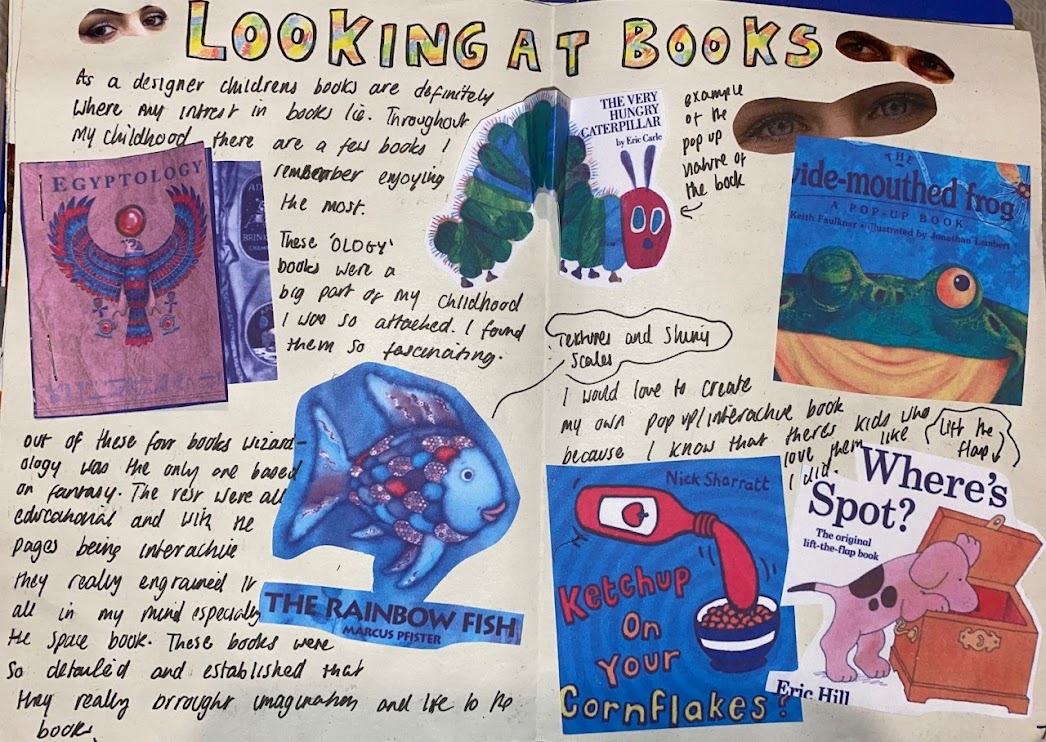 LOOKING AT BOOKS
As a designer childrens books are definitely
where my intrest in books lie. Throughout
my childhood there are a few books I
remember enjoying
the most.
These 'OLOGY'
books were a
big part of my childhood
I was so attached. I found
them so fascinating.
EGYPTOLOGY
out of these four books wizard-
ology was the only one based
on fantasy. The rest were all
educational and with the
pages being interactive
they really engrained it
all in my mind especially
the space book. These books were
so detailed and established that
they really brought imagination and life to the
books.
THE RAINBOW FISH
MARCUS PFISTER
THE VERY
HUNGRY
CATERPILLAR
by Eric Carle
example
of the
pop up
nature of
the book
THE
wide-mouthed frog
A POP-UP BOOK
Keith Faulkner • illustrated by Jonathan Lambert
Textures and Shiny
Scales
I would love to create
my own pop up/interactive book
because I know that theres kids who
love them like
I did.
Lift the
flap
Nick Sharratt
Ketchup
On
Your
Cornflakes?
Where's
Spot?
The original
lift-the-flap book
Eric Hill